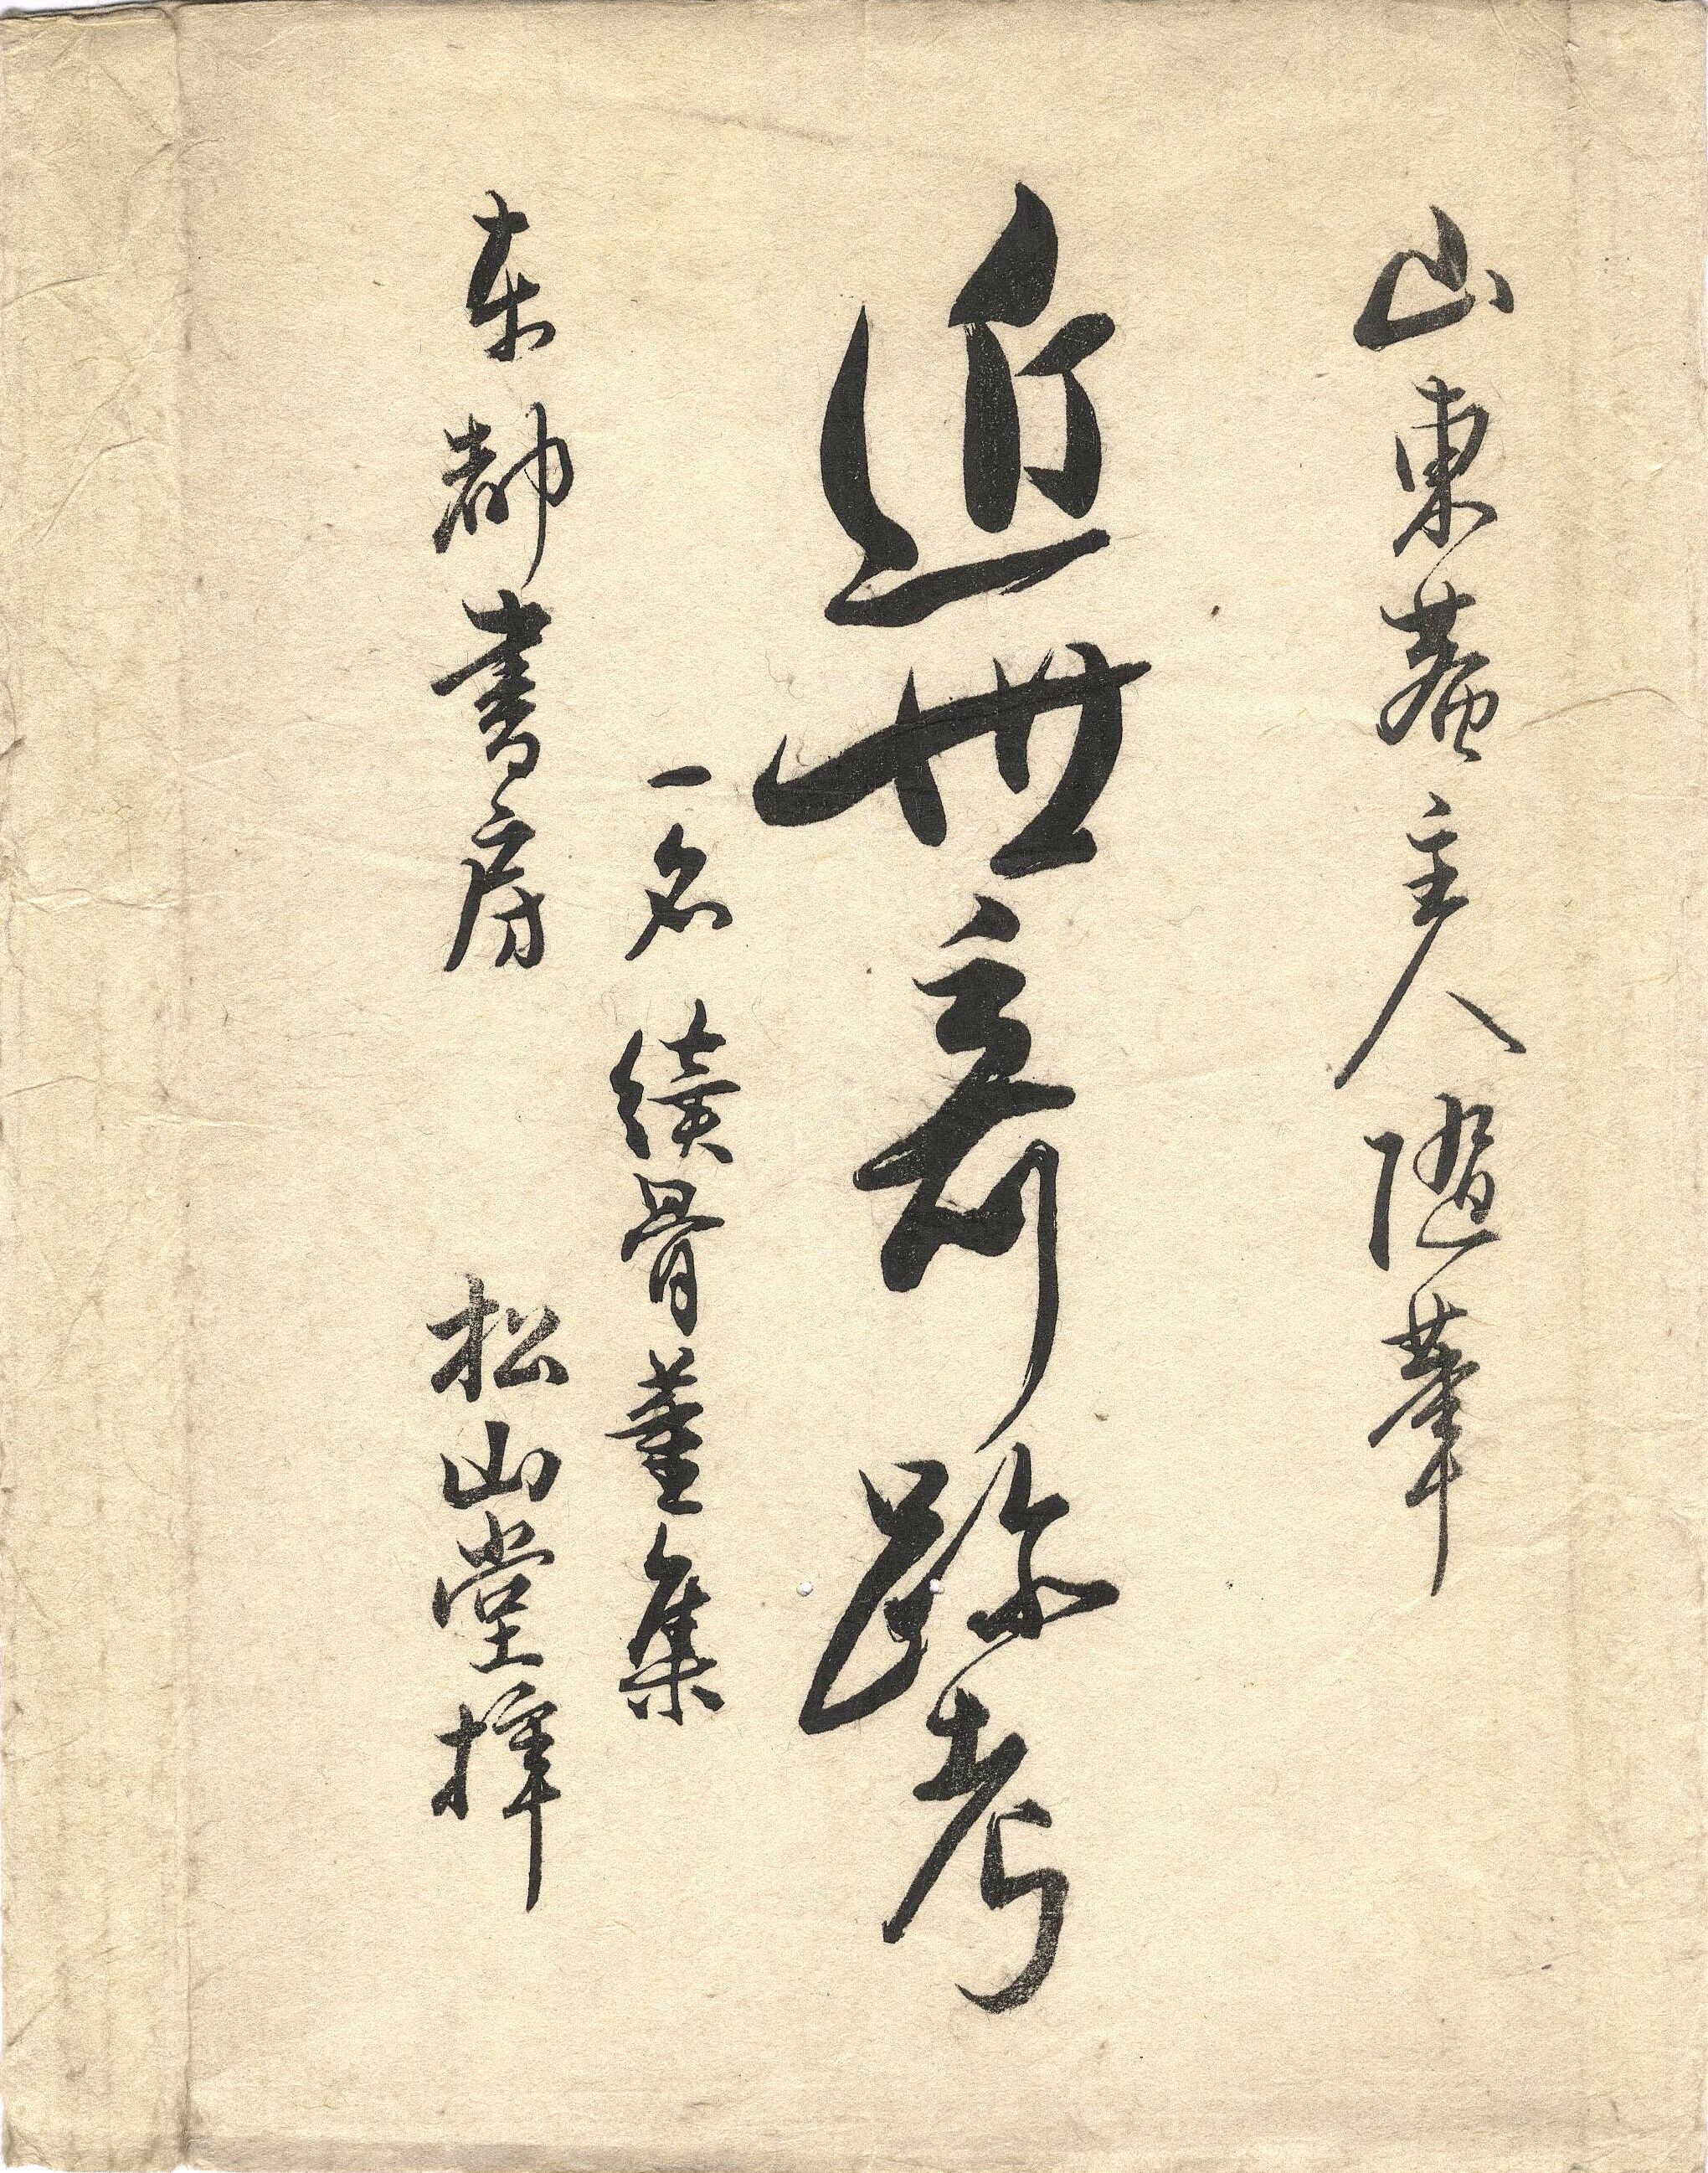 山東菴主人随筆
近世奇跡考
一名 續骨董集
東都書房 松山堂梓